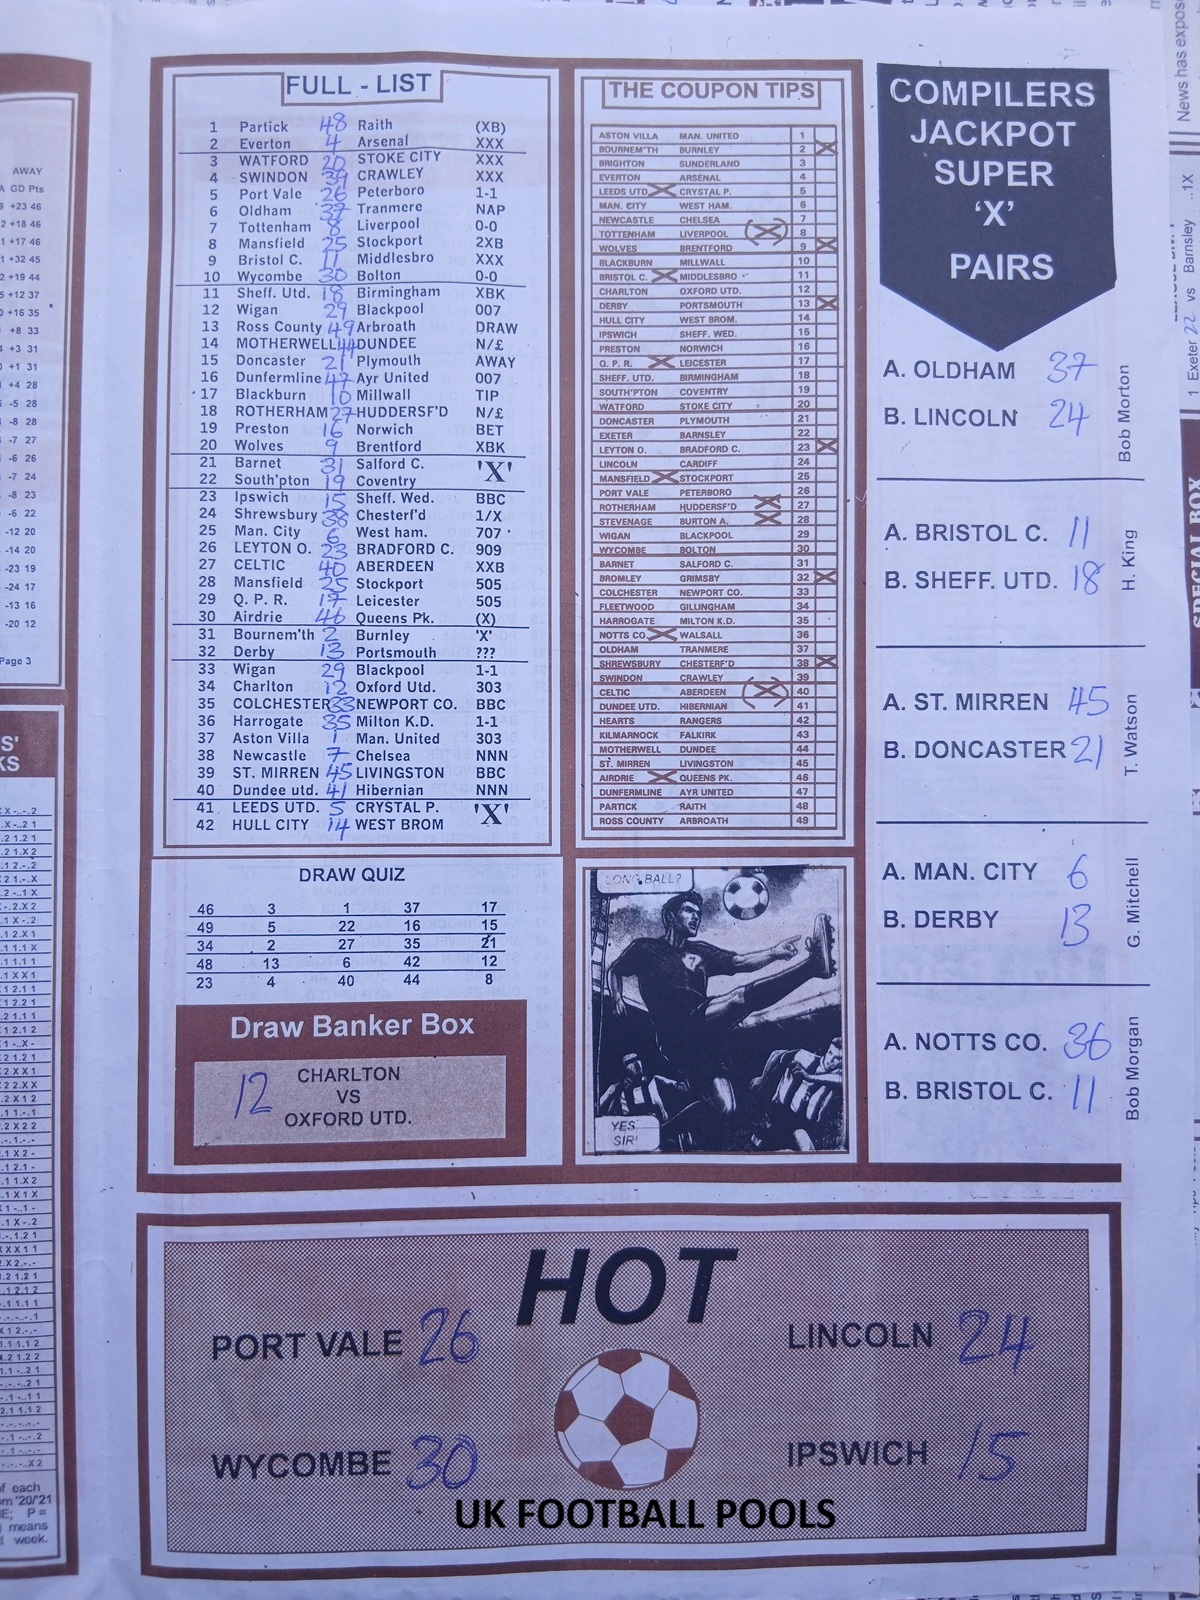 FULL - LIST
1 Partick 48 Raith (XB)
2 Everton 4 Arsenal XXX
3 WATFORD 20 STOKE CITY XXX
4 SWINDON 39 CRAWLEY XXX
5 Port Vale 26 Peterboro 1-1
6 Oldham 37 Tranmere NAP
7 Tottenham 8 Liverpool 0-0
8 Mansfield 25 Stockport 2XB
9 Bristol C. 11 Middlesbro XXX
10 Wycombe 30 Bolton 0-0
11 Sheff. Utd. 18 Birmingham XBK
12 Wigan 29 Blackpool 007
13 Ross County 49 Arbroath DRAW
14 MOTHERWELL 44 DUNDEE N/£
15 Doncaster 21 Plymouth AWAY
16 Dunfermline 47 Ayr United 007
17 Blackburn 10 Millwall TIP
18 ROTHERHAM 27 HUDDERSF'D N/£
19 Preston 16 Norwich BET
20 Wolves 9 Brentford XBK
21 Barnet 31 Salford C. 'X'
22 South'pton 19 Coventry
23 Ipswich 15 Sheff. Wed. BBC
24 Shrewsbury 38 Chesterf'd 1/X
25 Man. City 6 West ham. 707
26 LEYTON O. 23 BRADFORD C. 909
27 CELTIC 40 ABERDEEN XXB
28 Mansfield 25 Stockport 505
29 Q. P. R. 17 Leicester 505
30 Airdrie 46 Queens Pk. (X)
31 Bournem'th 2 Burnley 'X'
32 Derby 13 Portsmouth ???
33 Wigan 29 Blackpool 1-1
34 Charlton 12 Oxford Utd. 303
35 COLCHESTER 33 NEWPORT CO. BBC
36 Harrogate 35 Milton K.D. 1-1
37 Aston Villa 1 Man. United 303
38 Newcastle 7 Chelsea NNN
39 ST. MIRREN 45 LIVINGSTON BBC
40 Dundee utd. 41 Hibernian NNN
41 LEEDS UTD. 5 CRYSTAL P. 'X'
42 HULL CITY 14 WEST BROM
DRAW QUIZ
46 3 1 37 17
49 5 22 16 15
34 2 27 35 21
48 13 6 42 12
23 4 40 44 8
Draw Banker Box
12 CHARLTON
VS
OXFORD UTD.
THE COUPON TIPS
ASTON VILLA MAN. UNITED 1
BOURNEM'TH BURNLEY 2 X
BRIGHTON SUNDERLAND 3
EVERTON ARSENAL 4
LEEDS UTD. X CRYSTAL P. 5
MAN. CITY WEST HAM. 6
NEWCASTLE CHELSEA 7
TOTTENHAM LIVERPOOL (X) 8
WOLVES BRENTFORD 9 X
BLACKBURN MILLWALL 10
BRISTOL C. X MIDDLESBRO 11
CHARLTON OXFORD UTD. 12
DERBY PORTSMOUTH 13 X
HULL CITY WEST BROM. 14
IPSWICH SHEFF. WED. 15
PRESTON NORWICH 16
Q. P. R. X LEICESTER 17
SHEFF. UTD. BIRMINGHAM 18
SOUTH'PTON COVENTRY 19
WATFORD STOKE CITY 20
DONCASTER PLYMOUTH 21
EXETER BARNSLEY 22
LEYTON O. BRADFORD C. 23 X
LINCOLN CARDIFF 24
MANSFIELD X STOCKPORT 25
PORT VALE PETERBORO 26
ROTHERHAM HUDDERSF'D X 27
STEVENAGE BURTON A. X 28
WIGAN BLACKPOOL 29
WYCOMBE BOLTON 30
BARNET SALFORD C. 31
BROMLEY GRIMSBY 32 X
COLCHESTER NEWPORT CO. 33
FLEETWOOD GILLINGHAM 34
HARROGATE MILTON K.D. 35
NOTTS CO. X WALSALL 36
OLDHAM TRANMERE 37
SHREWSBURY CHESTERF'D 38 X
SWINDON CRAWLEY 39
CELTIC ABERDEEN (X) 40
DUNDEE UTD. HIBERNIAN 41
HEARTS RANGERS 42
KILMARNOCK FALKIRK 43
MOTHERWELL DUNDEE 44
ST. MIRREN LIVINGSTON 45
AIRDRIE X QUEENS PK. 46
DUNFERMLINE AYR UNITED 47
PARTICK RAITH 48
ROSS COUNTY ARBROATH 49
LONG BALL?
YES
SIR!
COMPILERS
JACKPOT
SUPER
'X'
PAIRS
A. OLDHAM 37
B. LINCOLN 24
Bob Morton
A. BRISTOL C. 11
B. SHEFF. UTD. 18
H. King
A. ST. MIRREN 45
B. DONCASTER 21
T. Watson
A. MAN. CITY 6
B. DERBY 13
G. Mitchell
A. NOTTS CO. 36
B. BRISTOL C. 11
Bob Morgan
HOT
PORT VALE 26
LINCOLN 24
WYCOMBE 30
IPSWICH 15
UK FOOTBALL POOLS
AWAY
GD Pts
+23 46
+18 46
+17 46
+32 45
+19 44
+12 37
+16 35
+8 33
+3 31
+1 31
+4 28
-5 28
-8 28
-7 27
-6 26
-7 24
-8 23
-6 22
-12 20
-14 20
-23 19
-24 17
-13 16
-20 12
Page 3
of each
means
week.
News has expos
1 Exeter 22 vs Barnsley ..1X
SPECIAL BOX